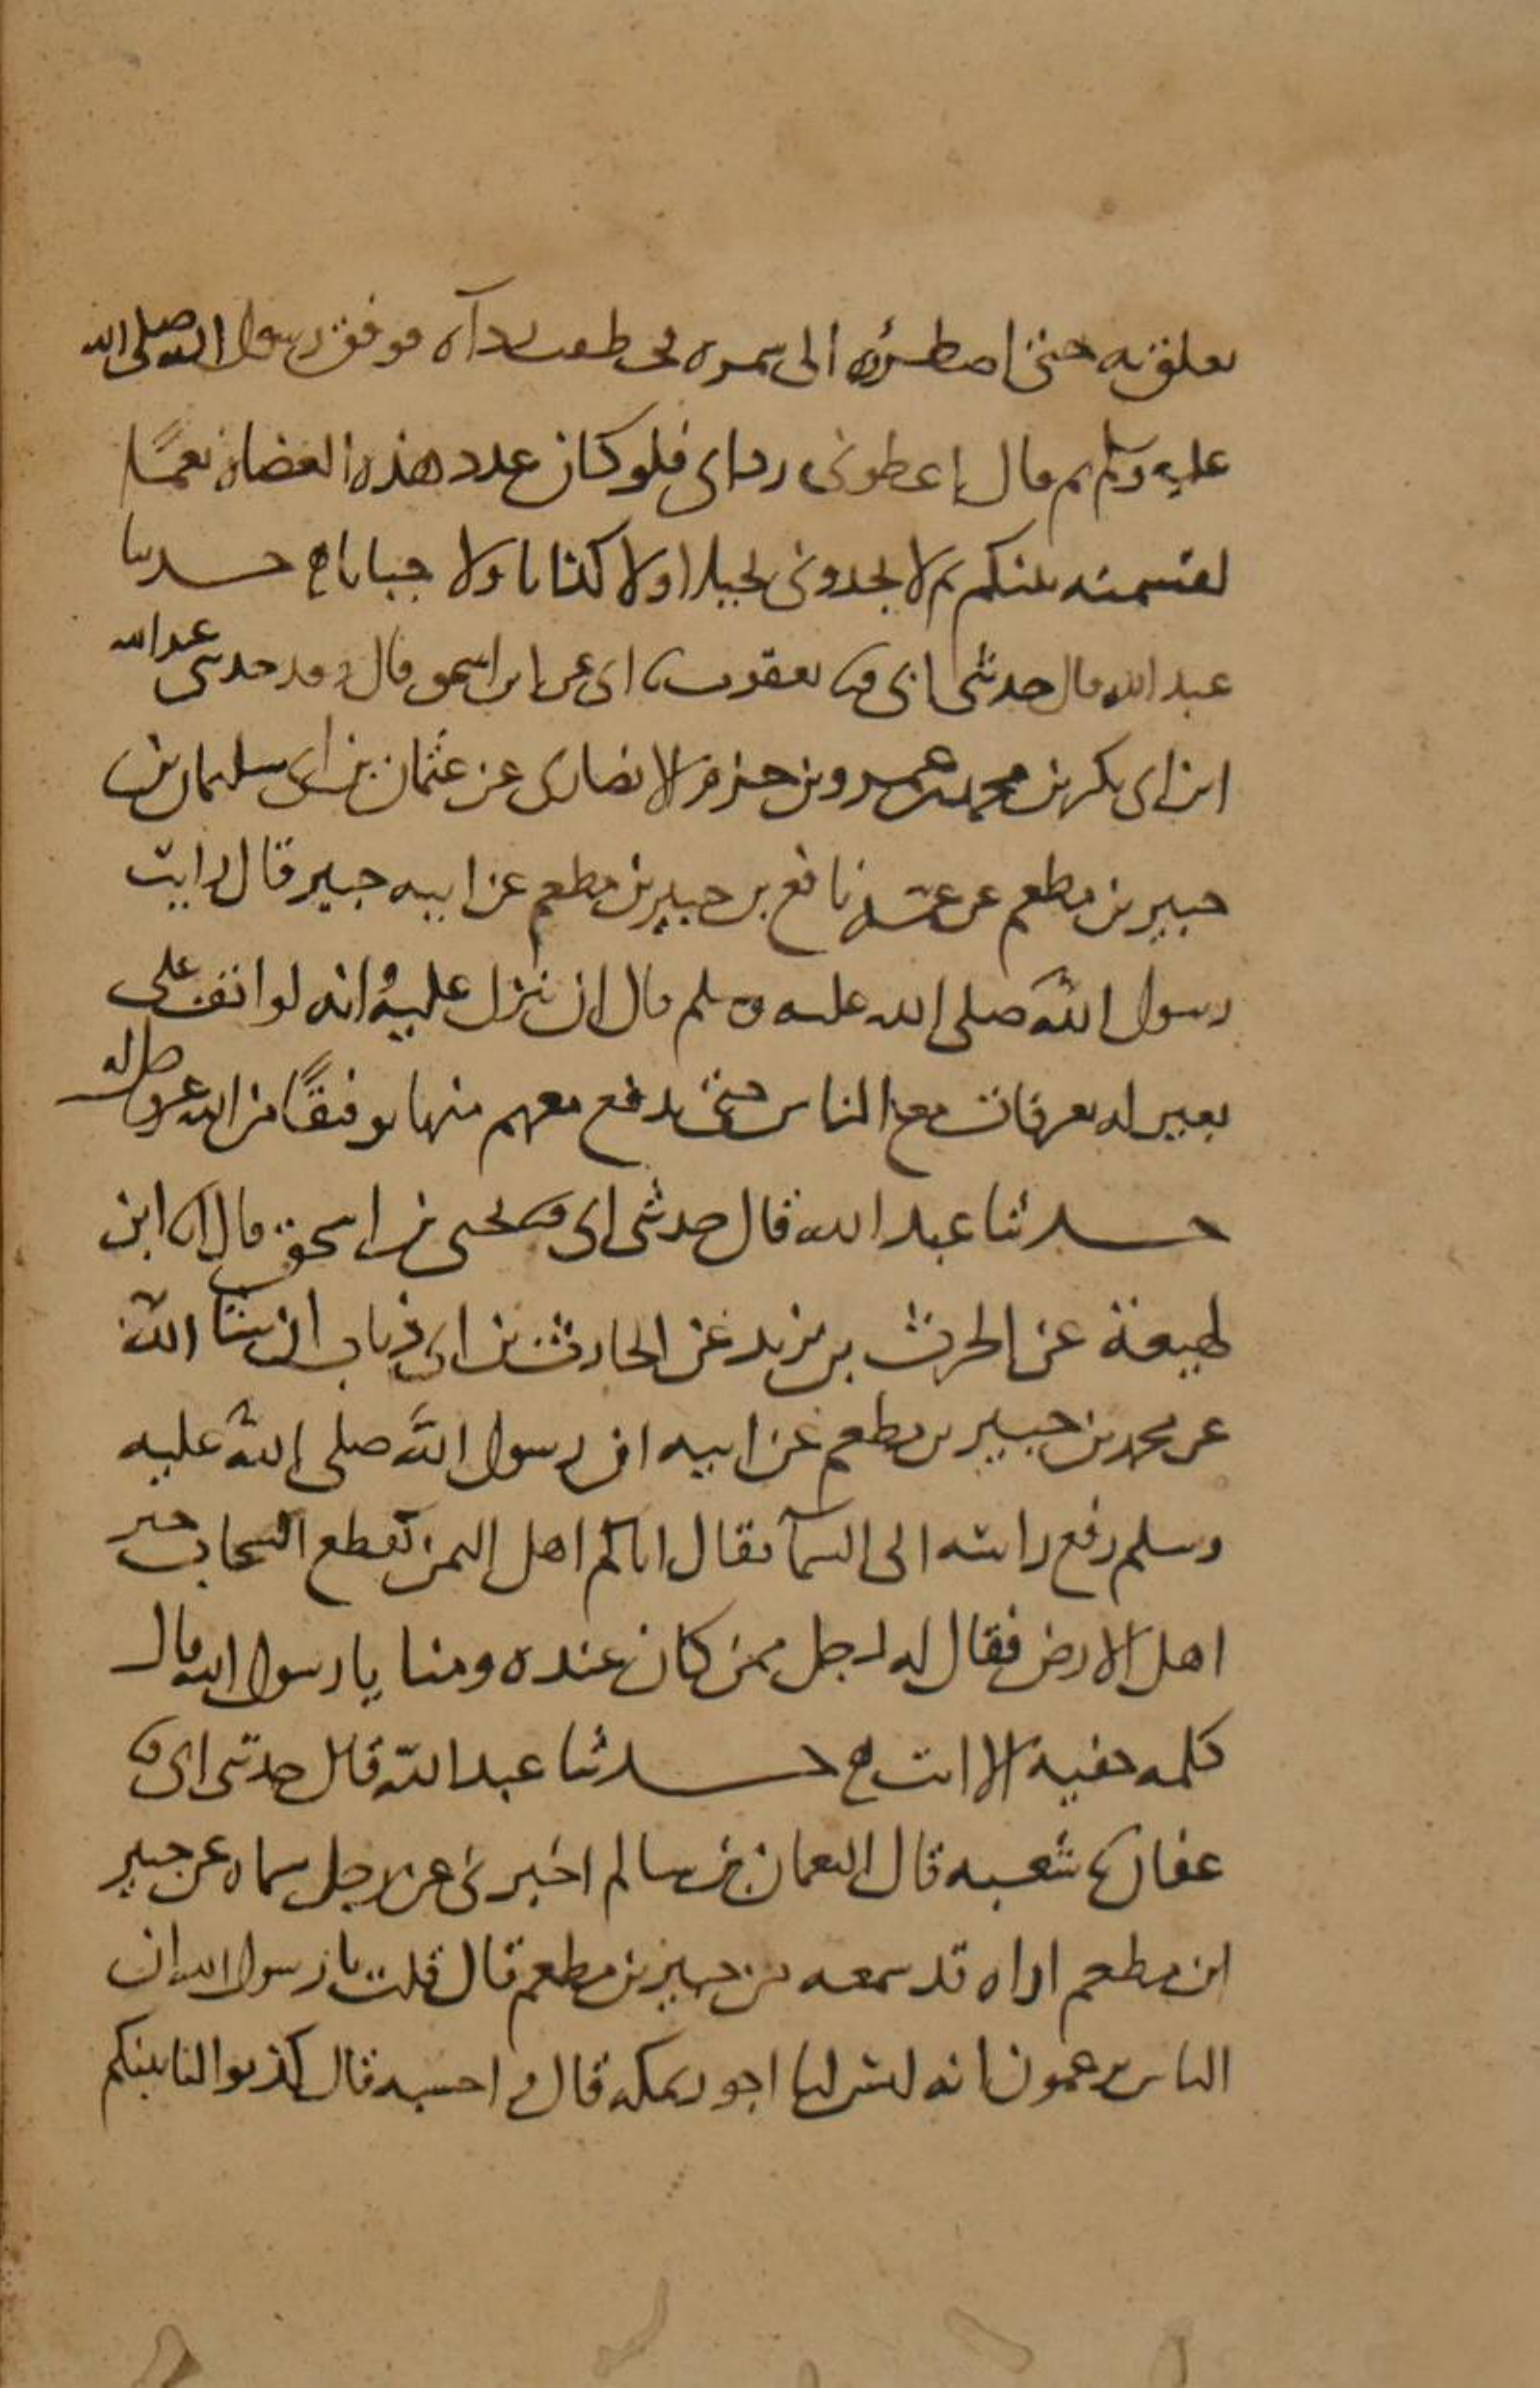 تعلق به حتى اضطروه الى سمره فخطفت رداه فوقف رسول الله صلى الله
عليه وسلم ثم قال اعطوني رداي فلو كان عدد هذه العضاة نعمًا
لقسمته بينكم ثم لا تجدوني بخيلا ولا كذابا ولا جبانا ح حدثنا
عبد الله قال حدثني ابي ثنا يعقوب ثنا ابي عن ابن اسحق قال وقد حدثني عبد الله
ابن ابي بكر بن محمد بن عمرو بن حزم الانصاري عن عثمان بن ابي سليمان بن
جبير بن مطعم عن عمه نافع بن جبير بن مطعم عن ابيه جبير قال رايت
رسول الله صلى الله عليه وسلم قال ان ينزل عليه وانه لواقف على
بعير له بعرفات مع الناس حتى يدفع معهم منها توفيقًا من الله عز وجل له
حدثنا عبد الله قال حدثني ابي ثنا يحيى بن اسحق قال انا ابن
لهيعة عن الحرث بن يزيد عن الحارث بن ابي ذباب ان شا الله
عن محمد بن جبير بن مطعم عن ابيه ان رسول الله صلى الله عليه
وسلم رفع راسه الى السمآ فقال اتاكم اهل اليمن كقطع السحاب خير
اهل الارض فقال له رجل ممن كان عنده ومنا يا رسول الله قال
كلمه خفية الا انتم ح حدثنا عبد الله قال حدثني ابي ثنا
عفان ثنا شعبه قال النعمان بن سالم اخبرني عن رجل سماه عن جبير
ابن مطعم اراه قد سمعه من جبير بن مطعم قال قلت يا رسول الله ان
الناس يزعمون انه ليس لنا اجور بمكه قال احسبه قال كذبوا لتاتينكم